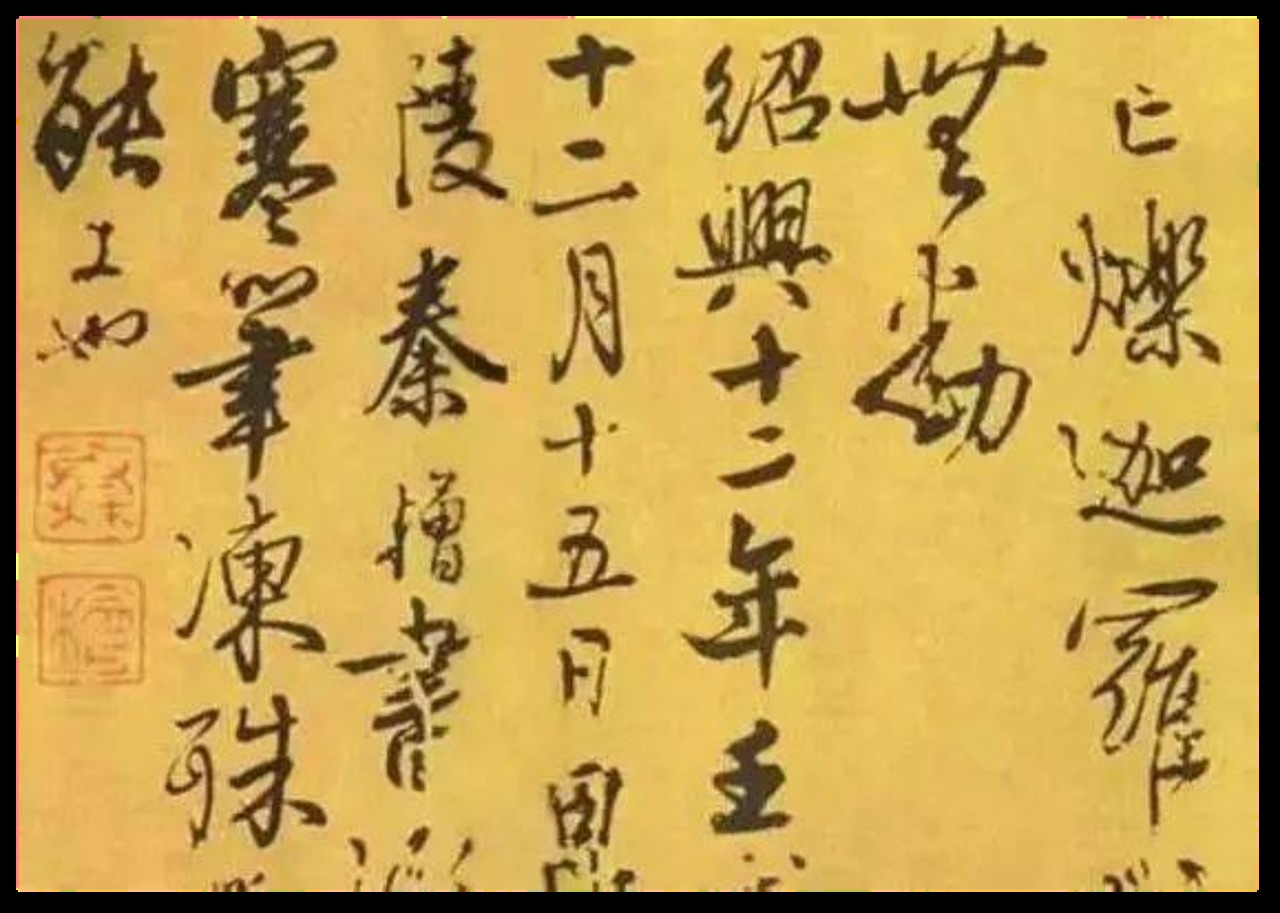 亡爍迦羅
無動
紹興十二年壬
十二月十五日
陵秦檜書
寒筆凍殊
能工也